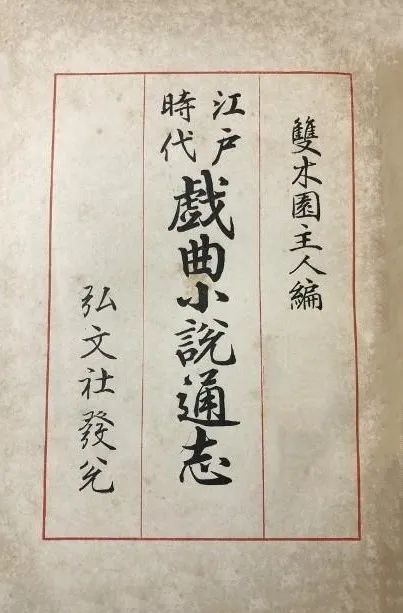 雙木園主人編
江戶時代戲曲小說通志
弘文社發兌